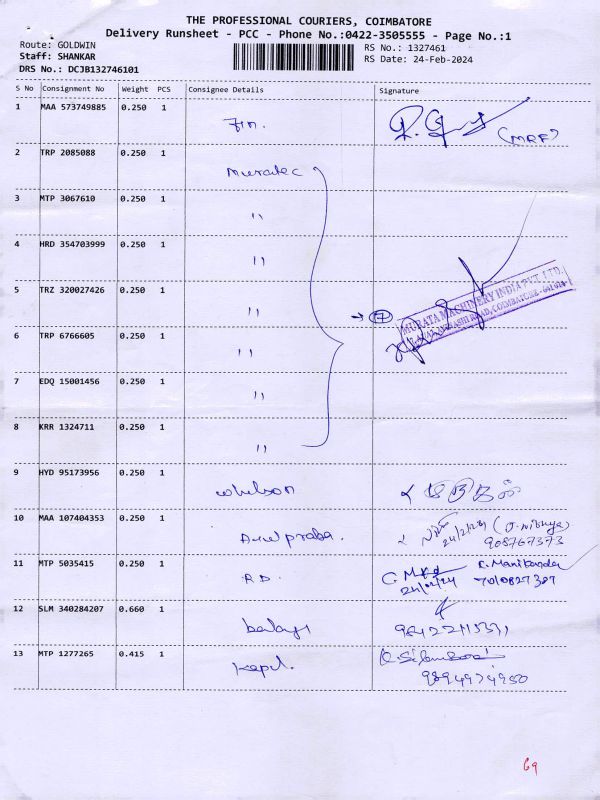 THE PROFESSIONAL COURIERS, COIMBATORE
Delivery Runsheet - PCC - Phone No.:0422-3505555 - Page No.:1
Route: GOLDWIN
Staff: SHANKAR
DRS No.: DCJB132746101
RS No.: 1327461
RS Date: 24-Feb-2024
S No Consignment No Weight PCS Consignee Details Signature
1 MAA 573749885 0.250 1
(MRF)
2 TRP 2085088 0.250 1 Muratec
3 MTP 3067610 0.250 1 "
4 HRD 354703999 0.250 1 "
5 TRZ 320027426 0.250 1 "
→ 17
MURATA MACHINERY INDIA PVT. LTD.
ROAD, COIMBATORE
6 TRP 6766605 0.250 1 "
7 EDQ 15001456 0.250 1 "
8 KRR 1324711 0.250 1 "
9 HYD 95173956 0.250 1
10 MAA 107404353 0.250 1
24/2/24
908767373
11 MTP 5035415 0.250 1 R.D.
24/02/24
12 SLM 340284207 0.660 1 balaji
13 MTP 1277265 0.415 1 Kapil.
9894974950